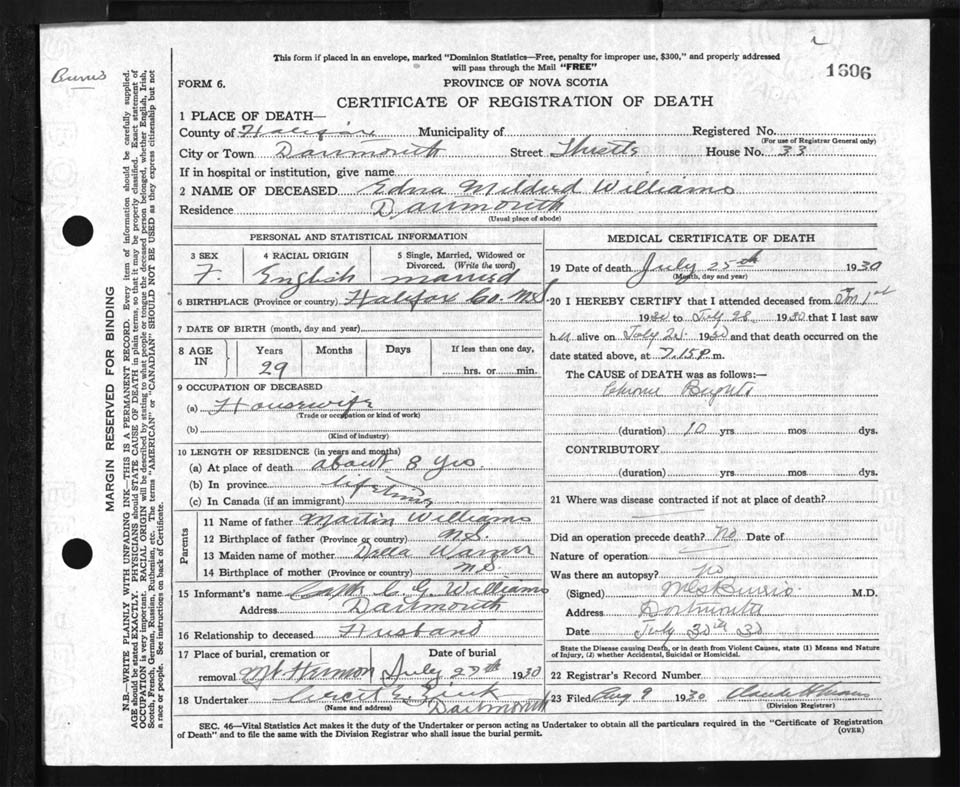 This form if placed in an envelope, marked "Dominion Statistics—Free, penalty for improper use, $300," and properly addressed
will pass through the Mail "FREE"
Burns
1606
FORM 6.
PROVINCE OF NOVA SCOTIA
CERTIFICATE OF REGISTRATION OF DEATH
1 PLACE OF DEATH—
County of Halifax Municipality of Registered No.
(For use of Registrar General only)
City or Town Dartmouth Street Thistle House No. 33
If in hospital or institution, give name
2 NAME OF DECEASED Edna Mildred Williams
Residence Dartmouth
(Usual place of abode)
MARGIN RESERVED FOR BINDING
N.B.—WRITE PLAINLY WITH UNFADING INK—THIS IS A PERMANENT RECORD. Every item of information should be carefully supplied.
AGE should be stated EXACTLY. PHYSICIANS should STATE CAUSE OF DEATH in plain terms, so that it may be properly classified. Exact statement of
OCCUPATION is very important. RACIAL ORIGIN will be described by stating to what people or tongue the deceased person belonged, whether English, Irish,
Scotch, French, German, Russian, Ruthenian, etc. The terms "AMERICAN" or "CANADIAN" SHOULD NOT BE USED as they express citizenship but not
a race or people. See instructions on back of Certificate.
PERSONAL AND STATISTICAL INFORMATION
3 SEX
F.
4 RACIAL ORIGIN
English
5 Single, Married, Widowed or
Divorced. (Write the word)
married
6 BIRTHPLACE (Province or country) Halifax Co. N.S.
7 DATE OF BIRTH (month, day and year)
8 AGE IN
Years Months Days If less than one day,
29 hrs. or min.
9 OCCUPATION OF DECEASED
(a) Housewife
(Trade or occupation or kind of work)
(b)
(Kind of industry)
10 LENGTH OF RESIDENCE (in years and months)
(a) At place of death about 8 yrs.
(b) In province lifetime
(c) In Canada (if an immigrant)
Parents
11 Name of father Martin Williams
12 Birthplace of father (Province or country) N.S.
13 Maiden name of mother Warner
14 Birthplace of mother (Province or country) N.S.
15 Informant's name C. G. Williams
Address Dartmouth
16 Relationship to deceased Husband
17 Place of burial, cremation or Date of burial
removal Mt. Hermon July 27th 1930
18 Undertaker Cecil E. Zink
(Name and address) Dartmouth
MEDICAL CERTIFICATE OF DEATH
19 Date of death July 25th 1930
(Month, day and year)
20 I HEREBY CERTIFY that I attended deceased from Jan 1st
1930 to July 28 1930 that I last saw
h er alive on July 25 1930 and that death occurred on the
date stated above, at 7.15 P. m.
The CAUSE of DEATH was as follows:—
Chronic Brights
(duration) 10 yrs mos dys.
CONTRIBUTORY
(duration) yrs. mos. dys.
21 Where was disease contracted if not at place of death?
Did an operation precede death? No Date of
Nature of operation
Was there an autopsy? No
(Signed) Burris M.D.
Address Dartmouth
Date July 30th 30
State the Disease causing Death, or in Death from Violent Causes, state (1) Means and Nature
of Injury, (2) whether Accidental, Suicidal or Homicidal.
22 Registrar's Record Number
23 Filed Aug 9 1930
(Division Registrar)
SEC. 46—Vital Statistics Act makes it the duty of the Undertaker or person acting as Undertaker to obtain all the particulars required in the "Certificate of Registration
of Death" and to file the same with the Division Registrar who shall issue the burial permit.
(OVER)